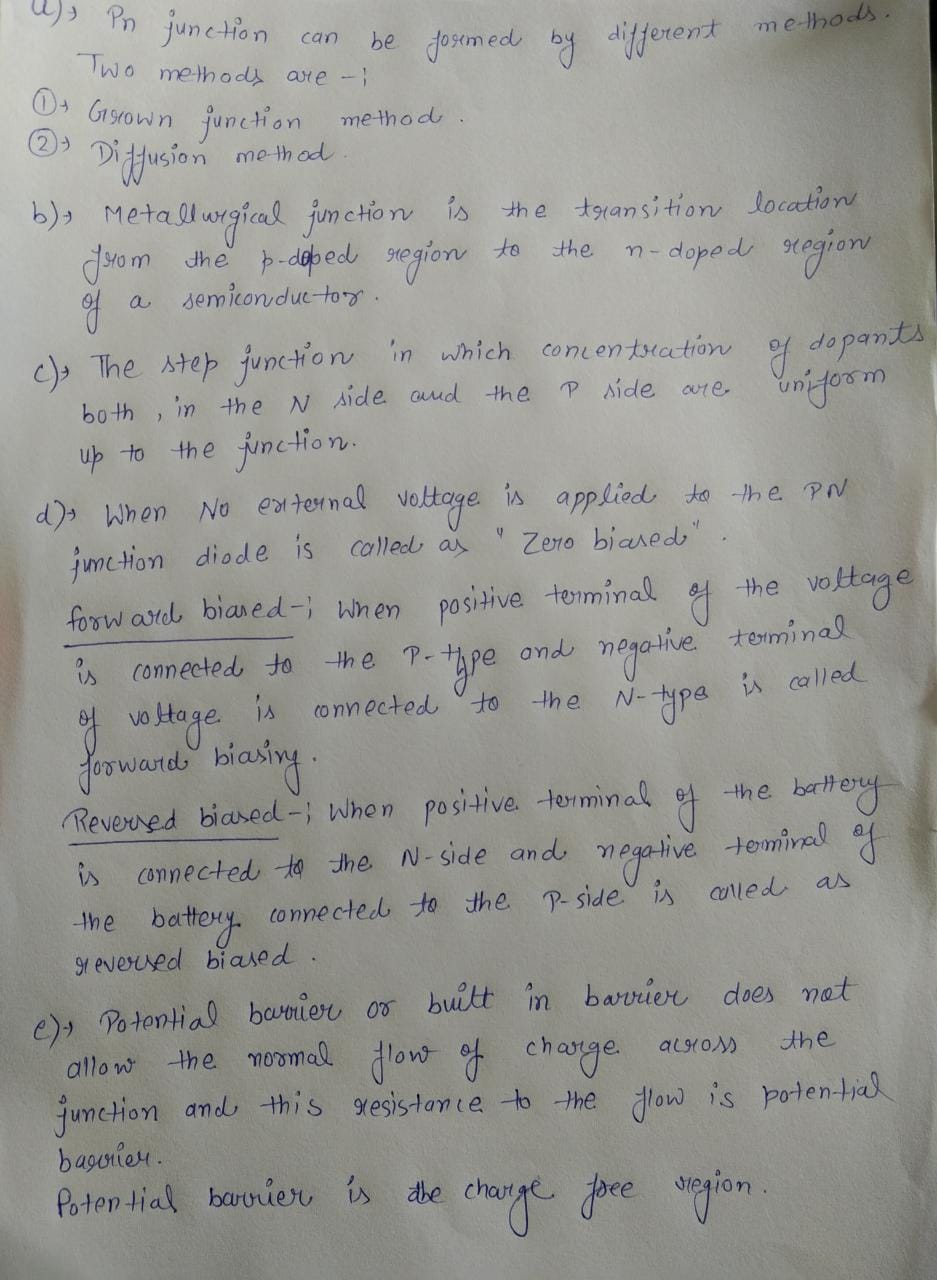 a)→ Pn junction can be formed by different methods.
Two methods are -;
①→ Grown junction method.
②→ Diffusion method.
b)→ Metallurgical junction is the transition location
from the p-doped region to the n-doped region
of a semiconductor.
c)→ The step junction in which concentration of dopants
both, in the N side and the P side are uniform
up to the junction.
d)→ When No external voltage is applied to the PN
junction diode is called as "Zero biased".
forward biased-; When positive terminal of the voltage
is connected to the P-type and negative terminal
of voltage is connected to the N-type is called
forward biasing.
Reversed biased-; When positive terminal of the battery
is connected to the N-side and negative terminal of
the battery connected to the P-side is called as
reversed biased.
e)→ Potential barrier or built in barrier does not
allow the normal flow of charge across the
junction and this resistance to the flow is potential
barrier.
Potential barrier is the charge free region.